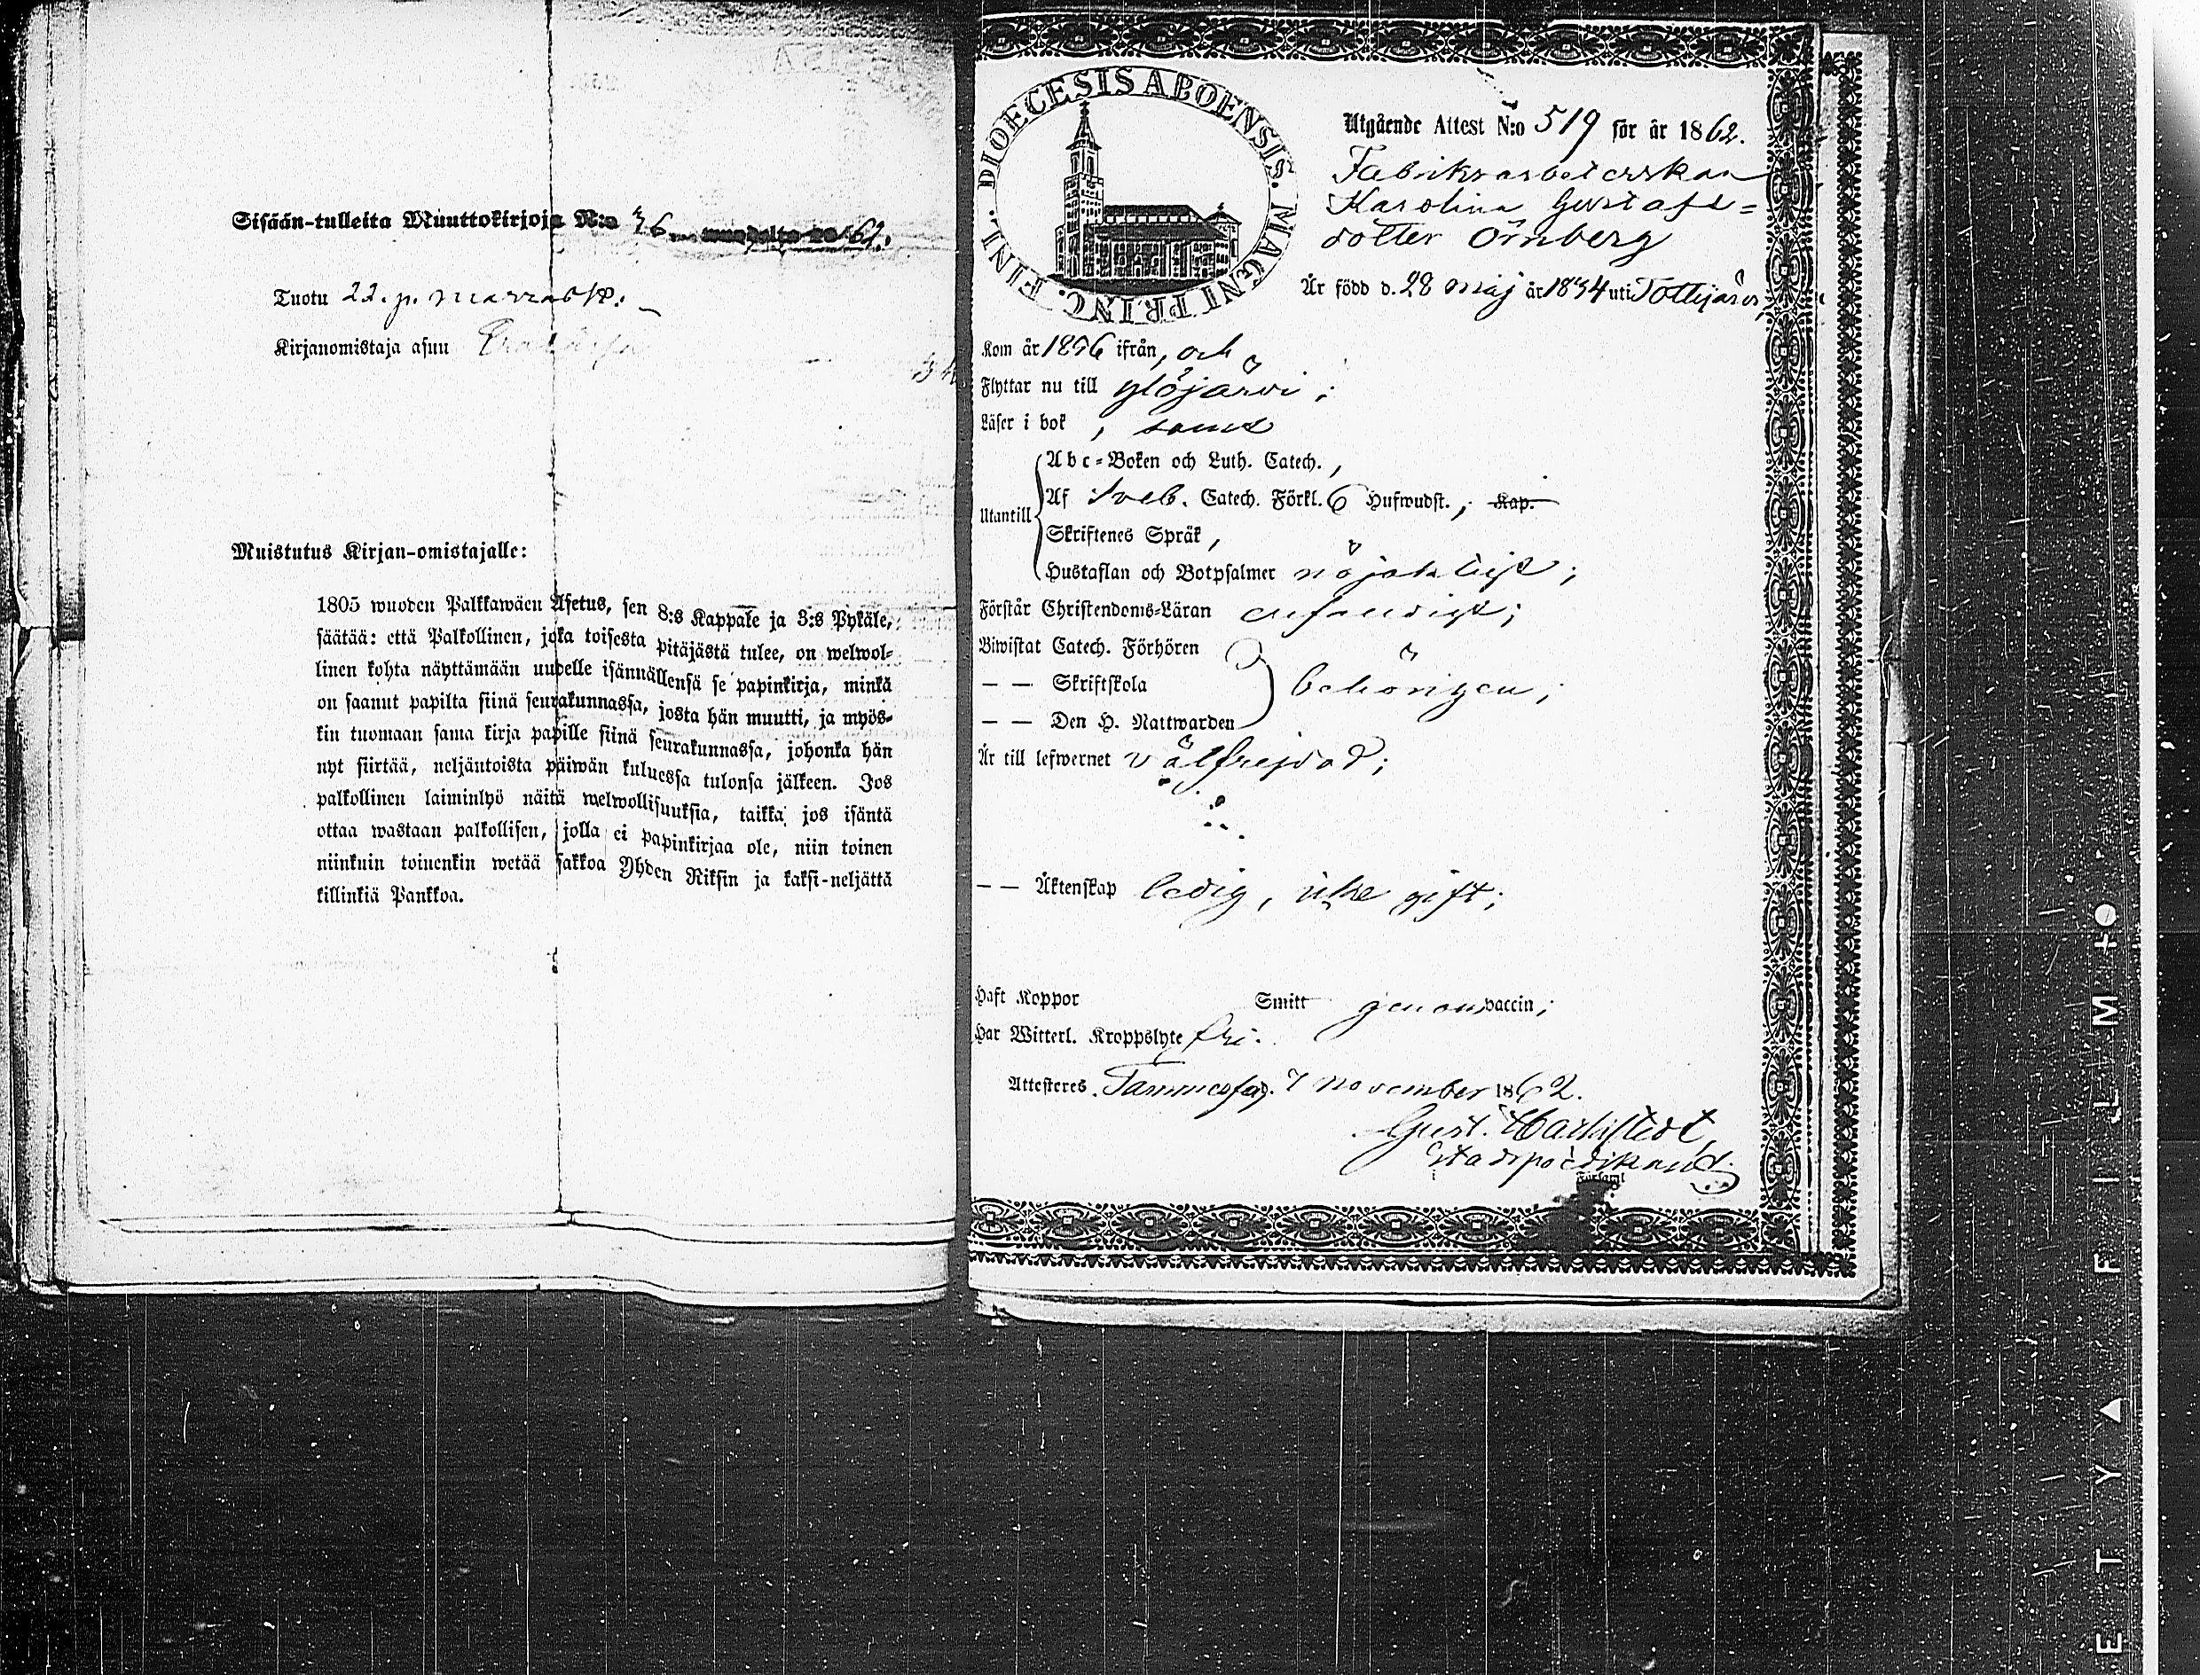 Sisään-tulleita Muuttokirjoja N:o 36. wuodelta 1861.
Tuotu 22. p. marrask.
Kirjanomistaja asuu
Muistutus Kirjan-omistajalle:
1805 wuoden Palkkawäen Asetus, sen 8:s Kappale ja 3:s Pykäle,
säätää: että Palkollinen, joka toisesta pitäjästä tulee, on welwol-
linen kohta näyttämään uudelle isännällensä se papinkirja, minkä
on saanut papilta siinä seurakunnassa, josta hän muutti, ja myös-
kin tuomaan sama kirja papille siinä seurakunnassa, johonka hän
nyt siirtää, neljäntoista päiwän kuluessa tulonsa jälkeen. Jos
palkollinen laiminlyö näitä welwollisuuksia, taikka jos isäntä
ottaa wastaan palkollisen, jolla ei papinkirjaa ole, niin toinen
niinkuin toinenkin wetää sakkoa Yhden Riksin ja kaksi-neljättä
killinkiä Pankkoa.
DIOECESIS ABOENSIS. MAGNI PRINC. FINL.
Utgående Attest N:o 519 för år 1862.
Fabriksarbeterskan
Karolina Gustafs=
dotter Örnberg
Är född d. 28 maj år 1834 uti Tottijärvi,
Kom år 1856 ifrån, och
Flyttar nu till Ylöjärvi;
Läser i bok, samt
Utantill
Abc=Boken och Luth. Catech.,
Af Sveb. Catech. Förkl. 6 Hufwudst., Kap.
Skriftenes Språk,
Hustaflan och Botpsalmer nöjaktigt;
Förstår Christendoms=Läran enfaldigt;
Biwistat Catech. Förhören
— — Skriftskola behörigen;
— — Den H. Nattwarden
Är till lefwernet välfrejdad;
— — Äktenskap ledig, icke gift;
Haft Koppor Smitt genom vaccin;
Har Witterl. Kroppslyte fri.
Attesteres. Tammerfors. 7 november 1862.
Gust.
Stadspredikant
Församl
ETY▲FILM